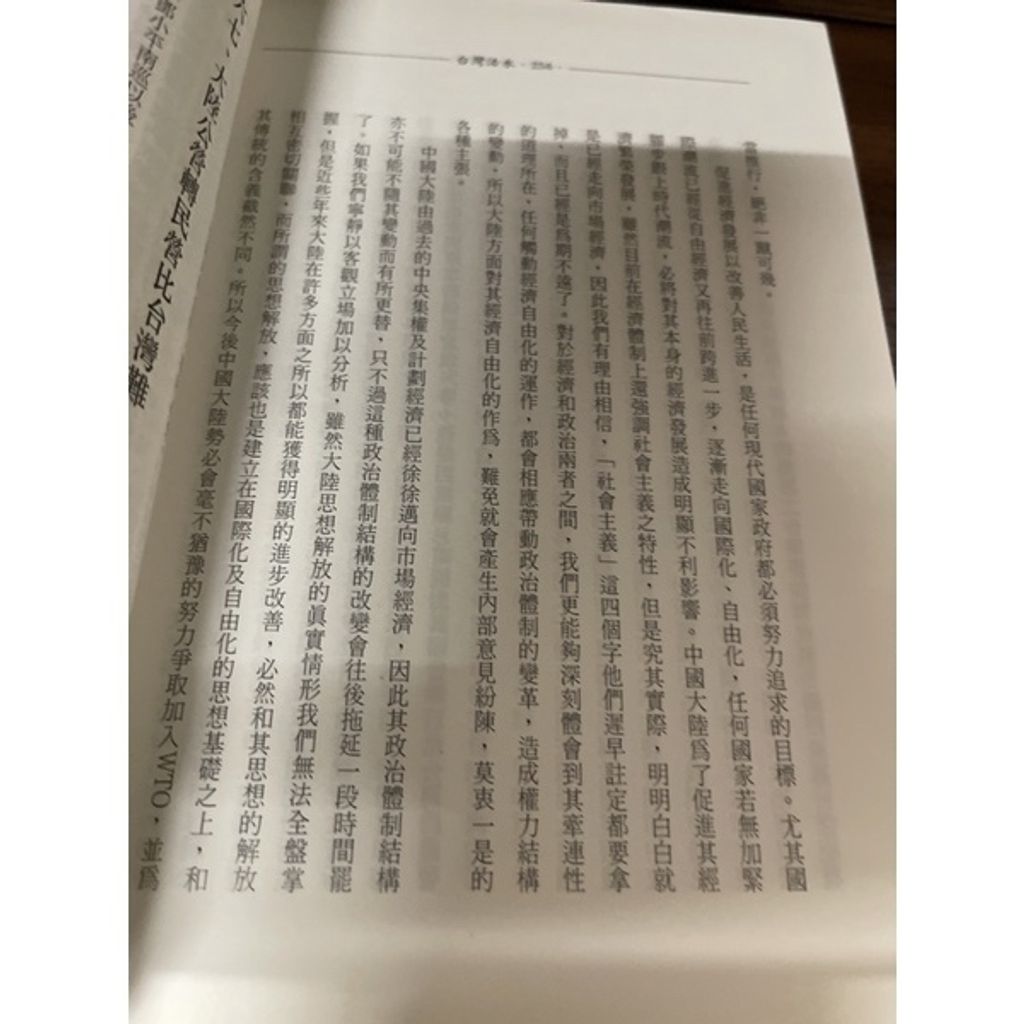 台灣活水·256·
當推行，絕非一蹴可幾。
促進經濟發展以改善人民生活，是任何現代國家政府都必須努力追求的目標。尤其國
際潮流已經從自由經濟又再往前跨進一步，逐漸走向國際化、自由化，任何國家若無加緊
腳步跟上時代潮流，必將對其本身的經濟發展造成明顯不利影響。中國大陸爲了促進其經
濟繁榮發展，雖然目前在經濟體制上還強調社會主義之特性，但是究其實際，明明白白就
是已經走向市場經濟，因此我們有理由相信，「社會主義」這四個字他們遲早註定都要拿
掉，而且已經是爲期不遠了。對於經濟和政治兩者之間，我們更能夠深刻體會到其牽連性
的道理所在，任何觸動經濟自由化的運作，都會相應帶動政治體制的變革，造成權力結構
的變動，所以大陸方面對其經濟自由化的作爲，難免就會產生內部意見紛陳，莫衷一是的
各種主張。
中國大陸由過去的中央集權及計劃經濟已經徐徐邁向市場經濟，因此其政治體制結構
亦不可能不隨其變動而有所更替，只不過這種政治體制結構的改變會往後拖延一段時間罷
了。如果我們寧靜以客觀立場加以分析，雖然大陸思想解放的眞實情形我們無法全盤掌
握，但是近些年來大陸在許多方面之所以都能獲得明顯的進步改善，必然和其思想的解放
相互密切關聯，而所謂的思想解放，應該也是建立在國際化及自由化的思想基礎之上，和
其傳統的含義截然不同。所以今後中國大陸勢必會毫不猶豫的努力爭取加入WTO，並爲
大陸公營轉民營比台灣難
鄧小平南巡以後